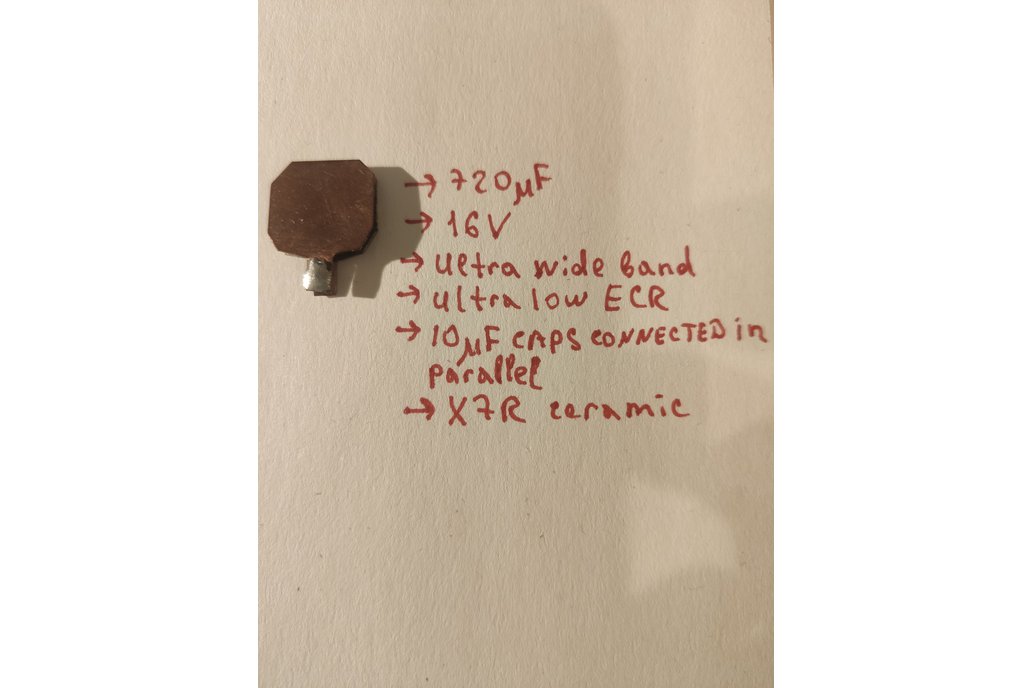 → 720µF
→ 16V
→ ultra wide band
→ ultra low ECR
→ 10µF CAPS CONNECTED in
parallel
→ X7R ceramic